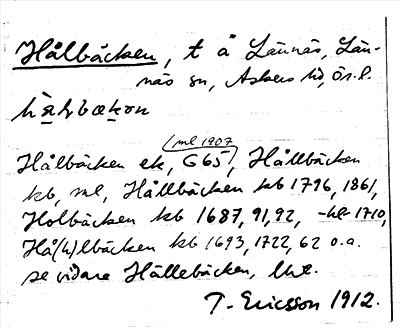 Hålbäcken, t å Lännäs, Län-
näs sn, Askers hd, Ör. l.
(ml 1907)
Hålbäcken ek, G65, Hållbäcken
kb, ml, Hållbäcken kb 1796, 1861,
Holbäcken kb 1687, 91, 92, -be- 1710,
Hå(h)lbäcken kb 1693, 1722, 62 o.a.
se vidare Hällebäcken, Utr.
T. Ericsson 1912.